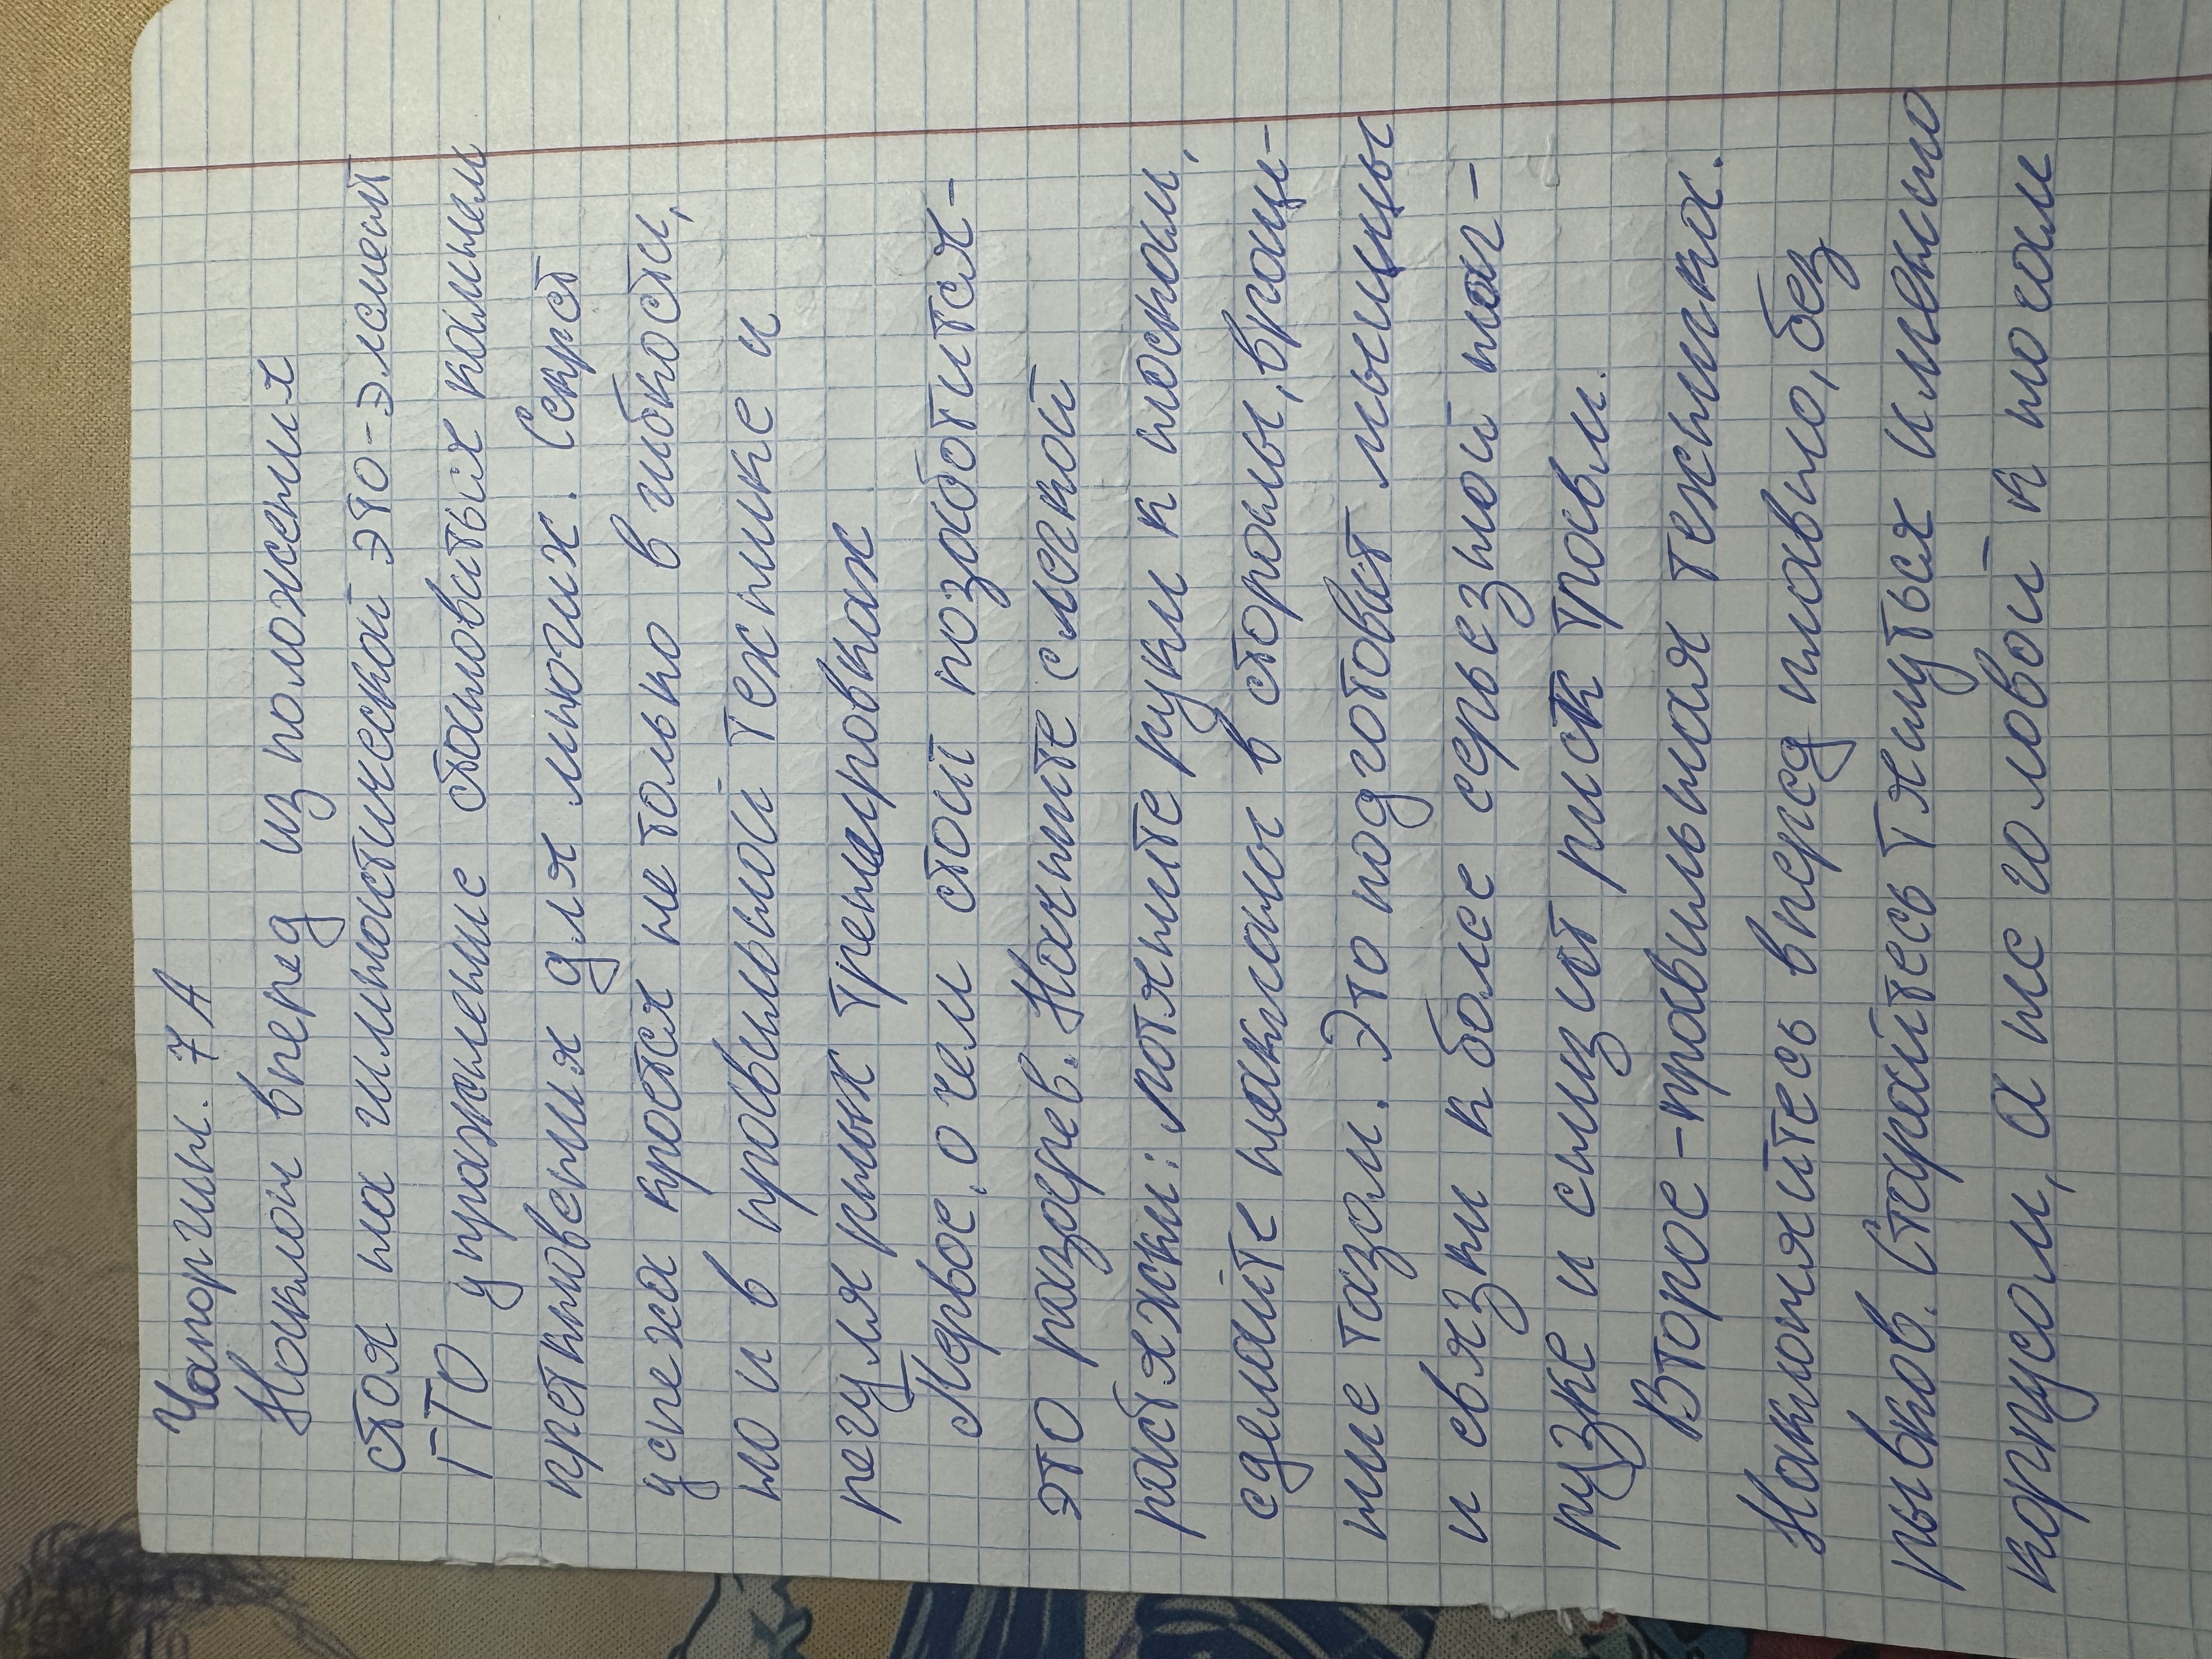 Чапоргин. 7 А
Наклон вперед из положения
стоя на гимнастической это - элемент
ГТО упражнение становиться камнем
преткновения для многих. Секрет
успеха кроется не только в гибкости,
но и в правильной технике и
регулярных тренировках
Первое, о чем стоит позаботится-
это разогрев. Начните с легкой
растяжки: потяните руки к носкам,
сделайте наклоны в стороны, враще-
ние тазом. Это подготовит мышцы
и связки к более серьезной наг-
рузке и снизит риск травм.
Второе - правильная техника.
Наклоняйтесь вперед плавно, без
рывков. Старайтесь тянуться именно
корпусом, а не головой к ногам